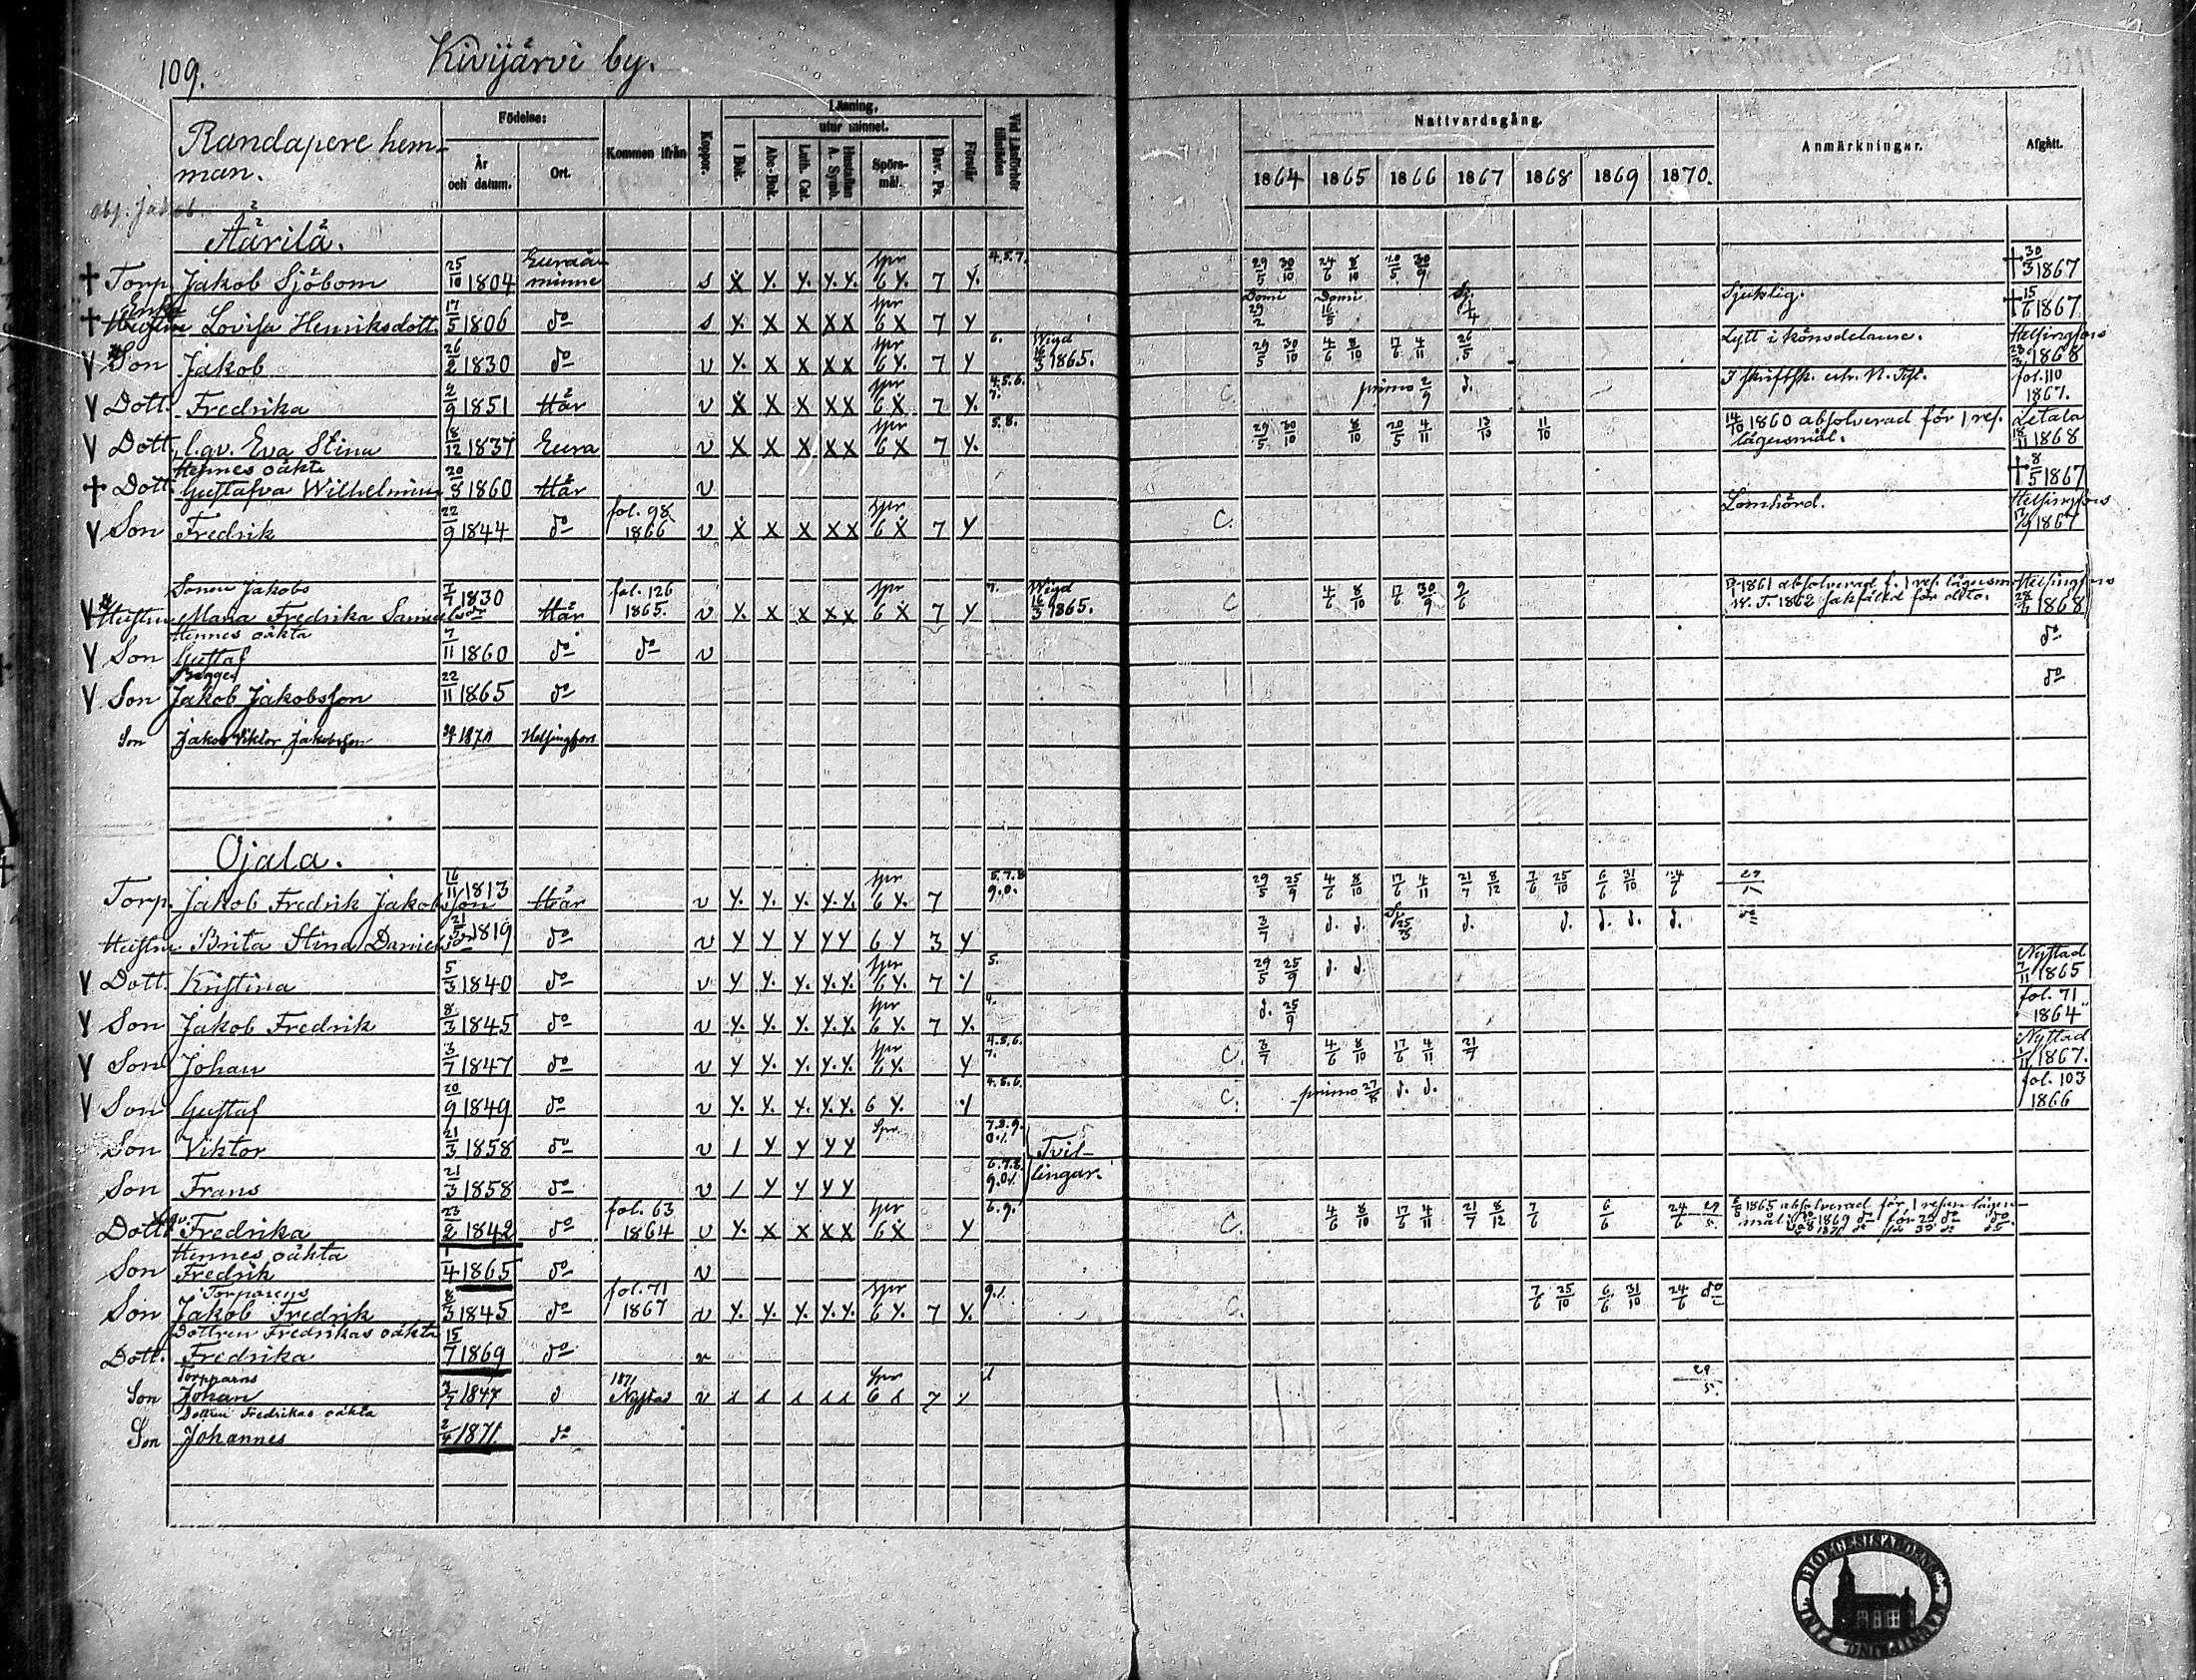 109.
Kivijärvi by.
Randapere hem-
man.
Födelse:
År
och datum.
Ort.
Kommen ifrån
Koppor.
Läsning,
utur minnet.
I Bok.
Abc-Bok.
Luth. Cat.
Hustaflan
A. Symb.
Spörs-
mål.
Dav. Ps.
Förstår
Vid Läsförhör
tillstädes
Nattvardsgång.
1864 1865 1866 1867 1868 1869 1870.
Anmärkningar.
Afgått.
Äärilä.
† Torp. Jakob Sjöbom 25/10 1804 Euraå-
minne s X Y. Y. Y. Y. Spr 6 Y. 7 Y. 4.5.7. 29/5 30/10 24/6 8/10 20/5 30/9 † 30/3 1867
† Enka Hustru Lovisa Henriksdott. 17/5 1806 do s Y. X X X X Spr 6 X 7 Y Domi 29/2 Domi 16/5 Sjuklig. † 15/6 1867
V Son Jakob 26/2 1830 do v Y. X X X X Spr 6 Y. 7 Y 6. Wigd
16/3 1865. 29/5 30/10 4/6 8/10 17/6 4/11 26/5 Lytt i könsdelarne. Helsingfors
1868
V Dott. Fredrika 2/9 1851 Här v X X X X X Spr 6 X 7 Y. 4.5.6.
7. C. primo 2/9 d. fol. 110
1867.
V Dott. l.qv. Eva Stina 18/12 1837 Eura v X X X X X Spr 6 X 7 Y. 5.8. 29/5 30/10 8/10 20/5 4/11 13/10 11/10 14/10 1860 absolverad för 1 res.
lägersmål. Letala
18/11 1868
Hennes oäkta
† Dott. Gustafva Wilhelmina 20/3 1860 Här v † 8/5 1867
V Son Fredrik 22/9 1844 do fol. 98
1866 v X X X X X Spr 6 X 7 Y C. Lomhörd. Helsingfors
17/9 1867
Sonen Jakobs
V Hustru Maria Fredrika Samuelsdr 7/7 1830 Här fol. 126
1865. v Y. X X X X Spr 6 X 7 Y 7. Wigd
16/3 1865. C 4/6 8/10 17/6 30/9 9/6 1861 absolverad f. 1 res. lägersm.
1862 sakfälld för dito. Helsingfors
28/7 1868
Hennes oäkta
V Son Gustaf 7/11 1860 do do v do
Begges
V Son Jakob Jakobsson 22/11 1865 do do
Son Jakob Viktor Jakobsson 1870 Helsingfors
Ojala.
Torp. Jakob Fredrik Jakobsson 16/11 1813 Här v Y. Y. Y. Y. Y. Spr 6 Y. 7 5.7.8
9.0. 29/5 25/9 4/6 8/10 17/6 4/11 21/7 8/12 7/6 25/10 6/6 31/10 24/6
Hustru Brita Stina Danielsdr 21/3 1819 do v Y Y Y Y Y 6 Y 3 Y 3/7 d. d. 25/3 d. d. d. d. d. do
V Dott. Kristina 5/3 1840 do v Y Y. Y. Y. Y. Spr 6 Y. 7 Y 5. 29/5 25/9 d. d. Nystad
7/11 1865
V Son Jakob Fredrik 8/3 1845 do v Y. Y. Y. Y. Y. Spr 6 Y. 7 Y. 4. d. 25/9 fol. 71
1864
V Son Johan 3/7 1847 do v Y Y. Y. Y. Y. Spr 6 Y. Y 4.5.6.
7. C. 3/7 4/6 8/10 17/6 4/11 21/7 Nystad
1/11 1867.
V Son Gustaf 20/9 1849 do v Y. Y. Y. Y. Y. 6 Y. Y 4.5.6. C. primo d. d. fol. 103
1866
Son Viktor 21/3 1858 do v / Y Y Y Y Spr 7.8.9.
0.1. Tvil-
Son Frans 21/3 1858 do v / Y Y Y Y 6.7.8.
9.0.1. lingar.
Dott. l.qv. Fredrika 23/2 1842 do fol. 63
1864 v Y. X X X X Spr 6 X Y 6.9. C. 4/6 8/10 17/6 4/11 21/7 8/12 7/6 6/6 24/6 29/5. 1865 absolverad för 1 resan läger-
mål. 1869 do för 2a do do
do för 3e do do
Hennes oäkta
Son Fredrik 1/4 1865 do v
Torparens
Son Jakob Fredrik 8/3 1845 do fol. 71
1867 v Y. Y. Y. Y. Y. Spr 6 Y. 7 Y. 9.1. C. 7/6 25/10 6/6 31/10 24/6 do
Dottren Fredrikas oäkta
Dott. Fredrika 15/7 1869 do v
Torparns
Son Johan 3/7 1847 d 1871
Nystad v Spr 6 7 1 29/5.
Dottren Fredrikas oäkta
Son Johannes 2/4 1871. do